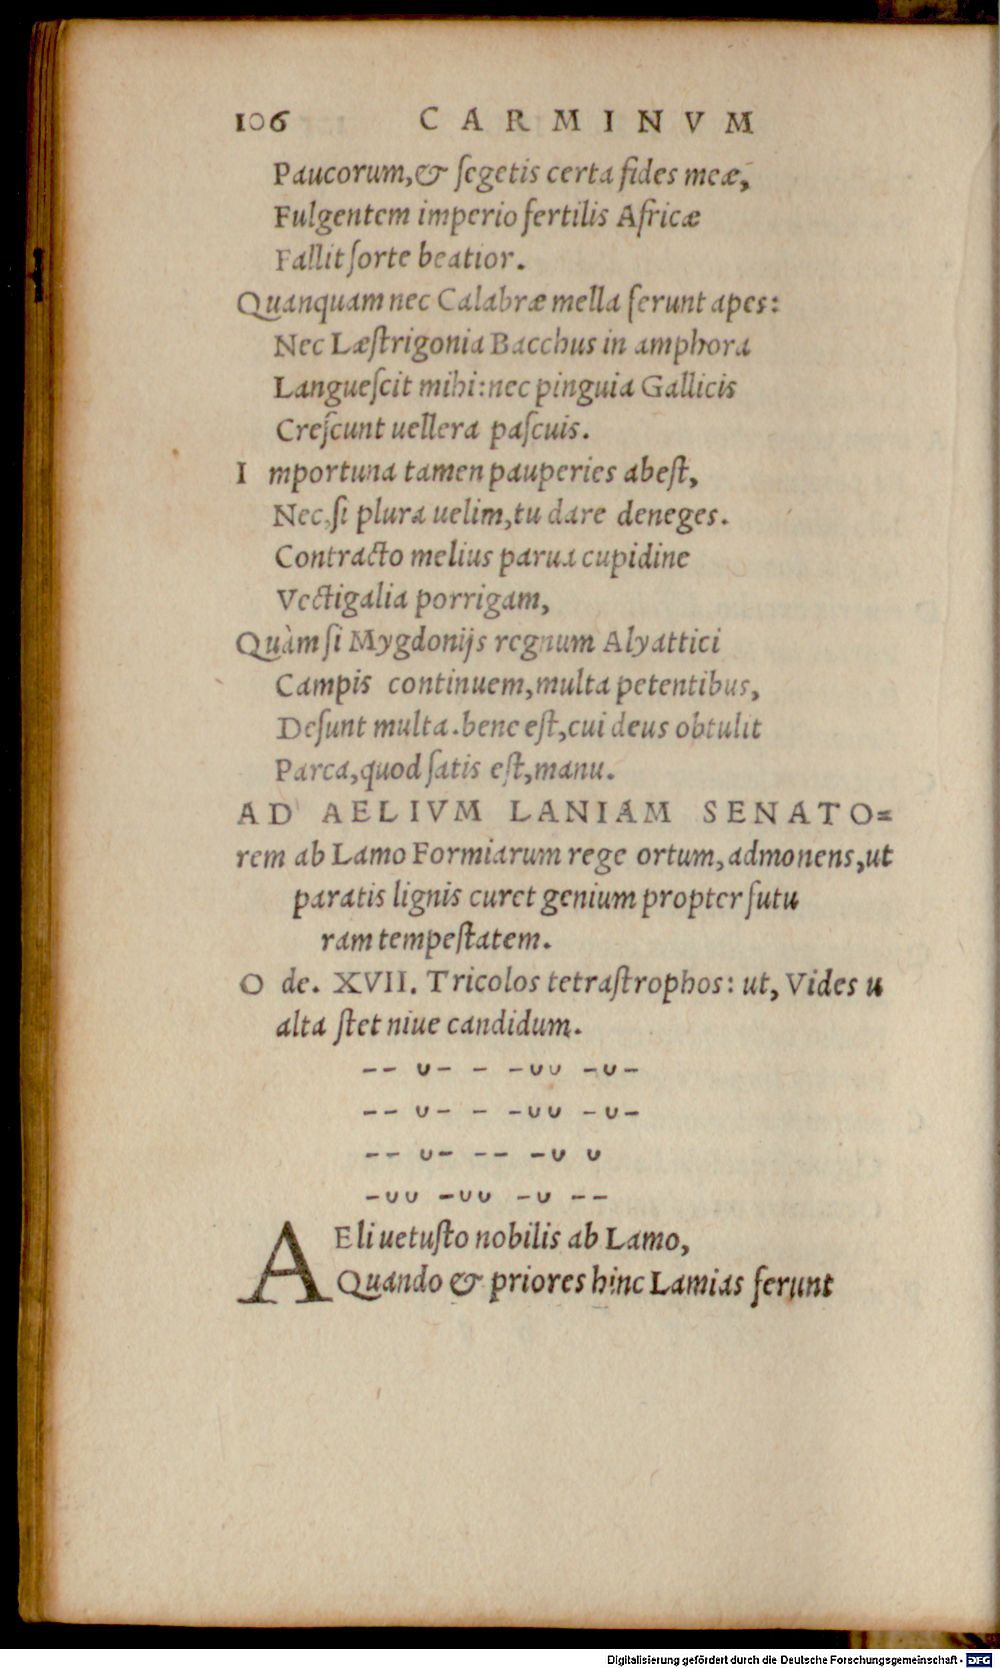 106 CARMINVM
Paucorum,& ſegetis certa fides meæ,
Fulgentem imperio fertilis Africæ
Fallit ſorte beatior.
Quanquam nec Calabræ mella ferunt apes:
Nec Læſtrigonia Bacchus in amphora
Langueſcit mihi: nec pinguia Gallicis
Creſcunt uellera paſcuis.
I mportuna tamen pauperies abeſt,
Nec,ſi plura uelim,tu dare deneges.
Contracto melius parua cupidine
Vectigalia porrigam,
Quàm ſi Mygdonijs regnum Alyattici
Campis continuem,multa petentibus,
Deſunt multa.bene eſt,cui deus obtulit
Parca,quod ſatis eſt,manu.
AD AELIVM LANIAM SENATO=
rem ab Lamo Formiarum rege ortum, admonens,ut
paratis lignis curet genium propter futu
ram tempeſtatem.
O de. XVII. Tricolos tetraſtrophos: ut, Vides u
alta ſtet niue candidum.
-- ∪- - -∪∪ -∪-
-- ∪- - -∪∪ -∪-
-- ∪- -- -∪ ∪
-∪∪ -∪∪ -∪ --
AEli uetuſto nobilis ab Lamo,
Quando & priores hinc Lamias ferunt
Digitalisierung gefördert durch die Deutsche Forschungsgemeinschaft - DFG